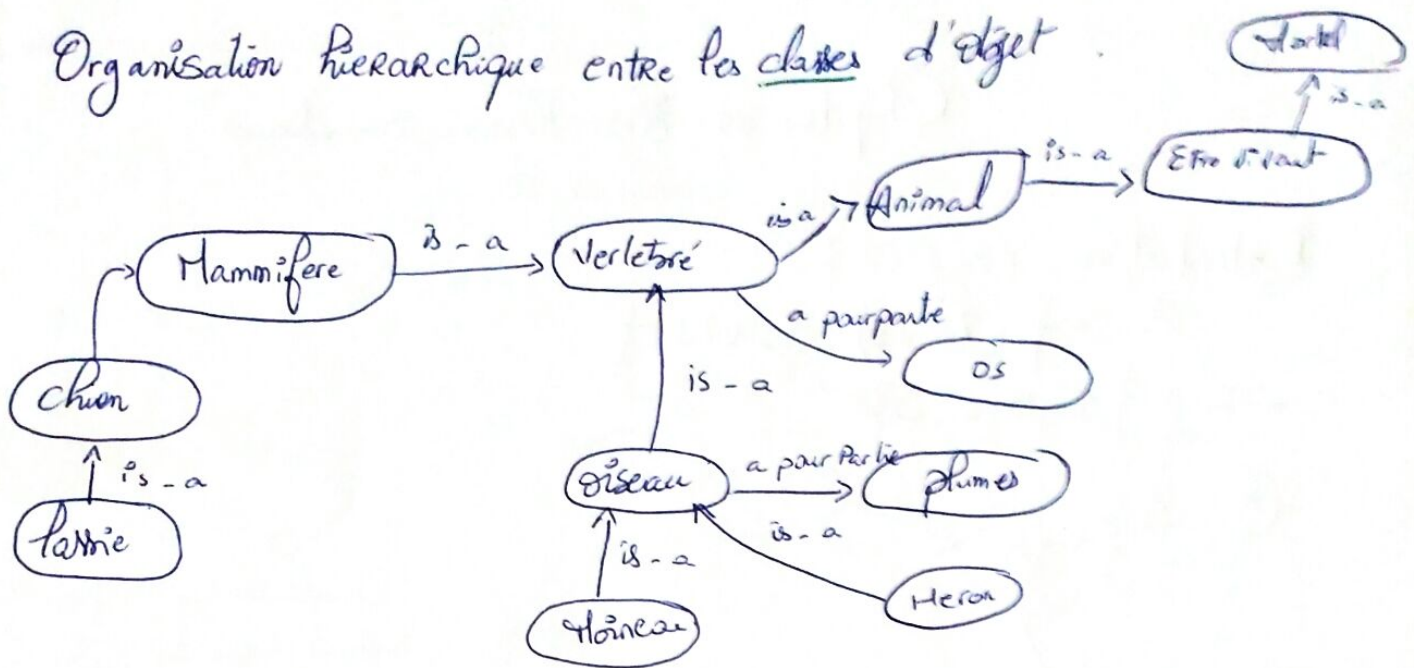 Organisation hierarchique entre les classes d'objet.
Mortel
is-a
Etre vivant
is-a
Animal
is a
Mammifere
is-a
Vertebré
a pour partie
os
Chien
is-a
is-a
Lassie
Oiseau
a pour Partie
plumes
is-a
is-a
Moineau
Heron